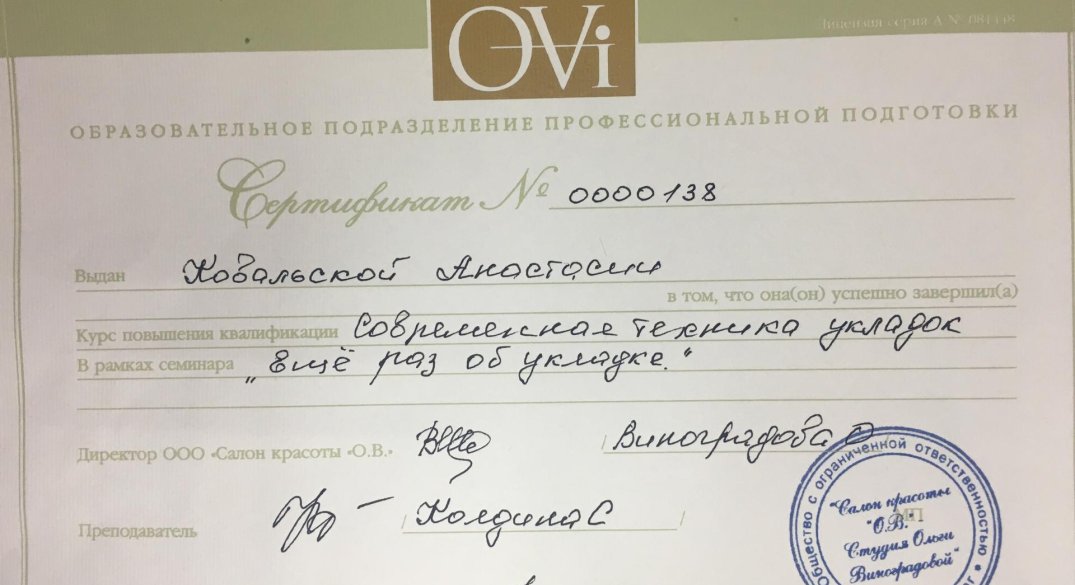 Лицензия серия А №
OVi
ОБРАЗОВАТЕЛЬНОЕ ПОДРАЗДЕЛЕНИЕ ПРОФЕССИОНАЛЬНОЙ ПОДГОТОВКИ
Сертификат № 0000138
Выдан Ковальской Анастасии
в том, что она(он) успешно завершил(а)
Курс повышения квалификации Современная техника укладок
В рамках семинара „Ещё раз об укладке."
Директор ООО «Салон красоты «О.В.» / Виноградова О
Преподаватель / Колдина С /
Общество с ограниченной ответственностью
"Салон красоты
МП
"О.В."
Студия Ольги
Виноградовой"